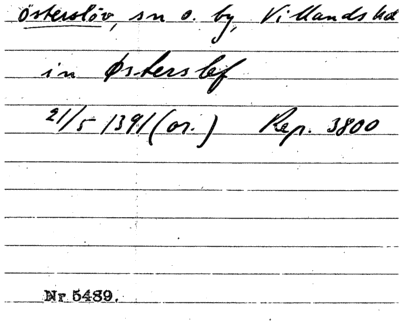 Österslöv, sn o. by, Villands hd
in Østerslef
21/5 1391 (or.) Rep. 3800
Nr 5489.